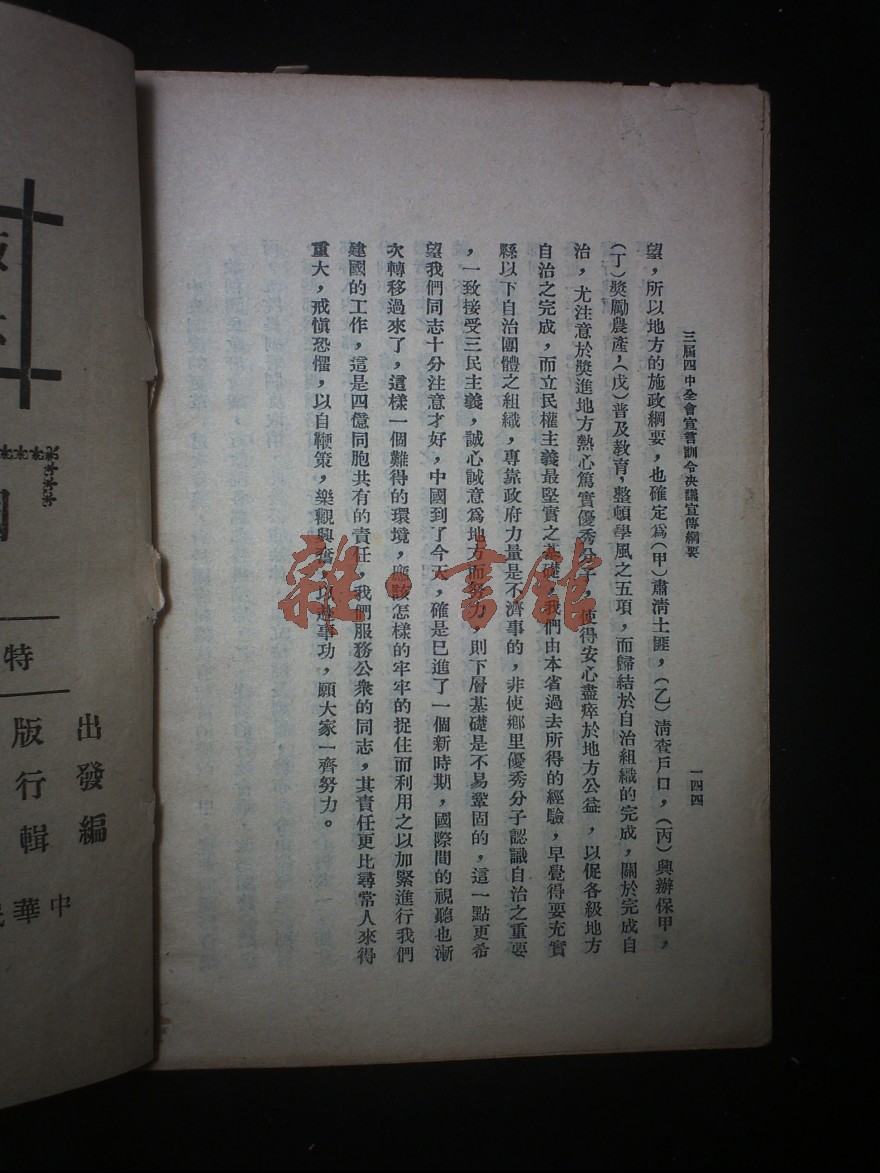 三屆四中全會宣言訓令決議宣傳綱要
一四四
望，所以地方的施政綱要，也確定爲（甲）肅淸土匪，（乙）淸查戶口，（丙）興辦保甲，
（丁）獎勵農產，（戊）普及教育，整頓學風之五項，而歸結於自治組織的完成，關於完成自
治，尤注意於獎進地方熱心篤實優秀分子，使得安心盡瘁於地方公益，以促各級地方
自治之完成，而立民權主義最堅實之基礎，我們由本省過去所得的經驗，早覺得要充實
縣以下自治團體之組織，專靠政府力量是不濟事的，非使鄉里優秀分子認識自治之重要
，一致接受三民主義，誠心誠意爲地方而努力，則下層基礎是不易鞏固的，這一點更希
望我們同志十分注意才好，中國到了今天，確是已進了一個新時期，國際間的視聽也漸
次轉移過來了，這樣一個難得的環境，應該怎樣的牢牢的捉住而利用之以加緊進行我們
建國的工作，這是四億同胞共有的責任，我們服務公衆的同志，其責任更比尋常人來得
重大，戒愼恐懼，以自鞭策，樂觀興奮，以赴事功，願大家一齊努力。
雜·書館
特
出版
發行
編輯
中華